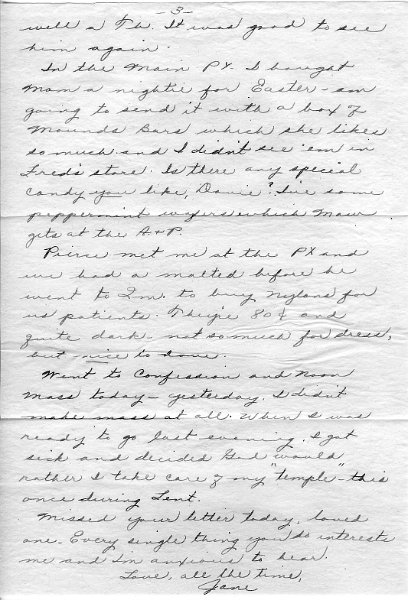 -3-
well a Th. It was good to see
him again.
In the Main PX. I bought
Mom a nightie for Easter - am
going to send it with a box of
Mounds Bars which she likes
so much and I didn't see 'em in
Fred's store. Is there any special
candy you like, Davie? I've some
peppermint wafers which Maw
gets at the A+P.
Pierce met me at the PX and
we had a malted before he
went to Q.M. to buy nylons for
us patients. They're 80¢ and
quite dark - not so much for dress,
but - nice to have.
Went to Confession and Noon
Mass today - yesterday, I didn't
make mass at all. When I was
ready to go last evening, I got
sick and decided God would
rather I take care of my "temple" - this
once during Lent.
Missed your letter today, loved
one. Every single thing you do interests
me and I'm anxious to hear.
Love, all the time,
Jane